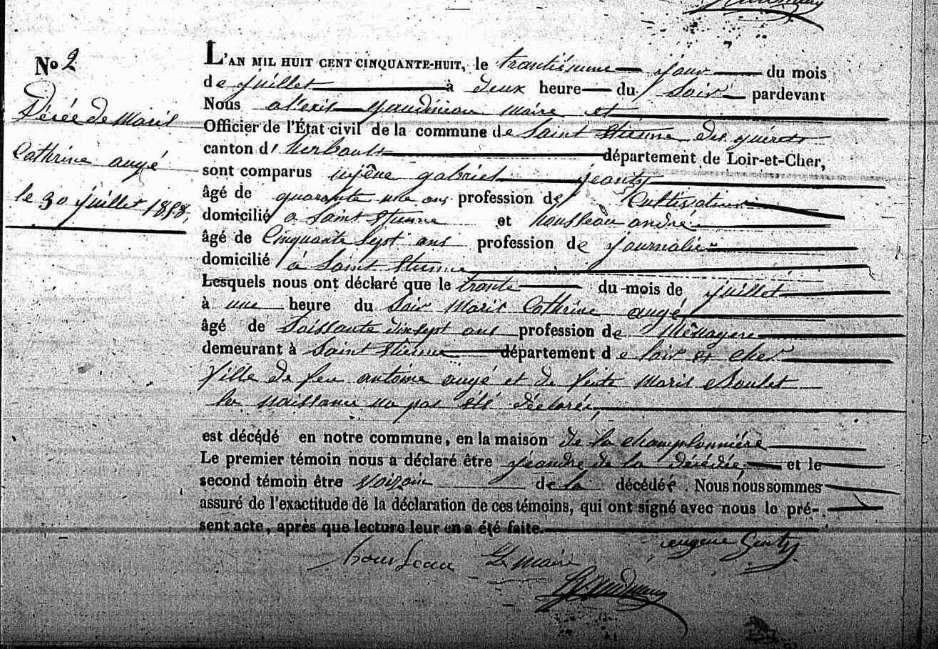 No 2
Décée de Marie
Cathrine augé
le 30 juillet 1858,
L'AN MIL HUIT CENT CINQUANTE-HUIT, le trantiéume jour du mois
de juillet à deux heure du soir pardevant
Nous alexis gaudineau maire et
Officier de l'État civil de la commune de Saint Etienne des guérets
canton d'herbault département de Loir-et-Cher,
sont comparus ugêne gabriel geanty
âgé de quarante une ans profession de Cultivateur
domicilié à Saint Etienne et housseau andré
âgé de Cinquante Sept ans profession de journalié
domicilié à Saint Etienne
Lesquels nous ont déclaré que le trante du mois de juillet
à une heure du Soir Marie Cathrine augé
âgé de Soissante dixsept ans profession de Ménagere
demeurant à Saint Etienne département de loir et cher
fille de feu antoine augé et de feute Marie Boulet
la naissance na pas été déclaré,
est décédé en notre commune, en la maison de la champlonnière
Le premier témoin nous a déclaré être geandre de la décédée et le
second témoin être voizoin de la décédée. Nous nous sommes
assuré de l'exactitude de la déclaration de ces témoins, qui ont signé avec nous le pré-
sent acte, après que lecture leur en a été faite.
eugene Genty
housseau Le maire